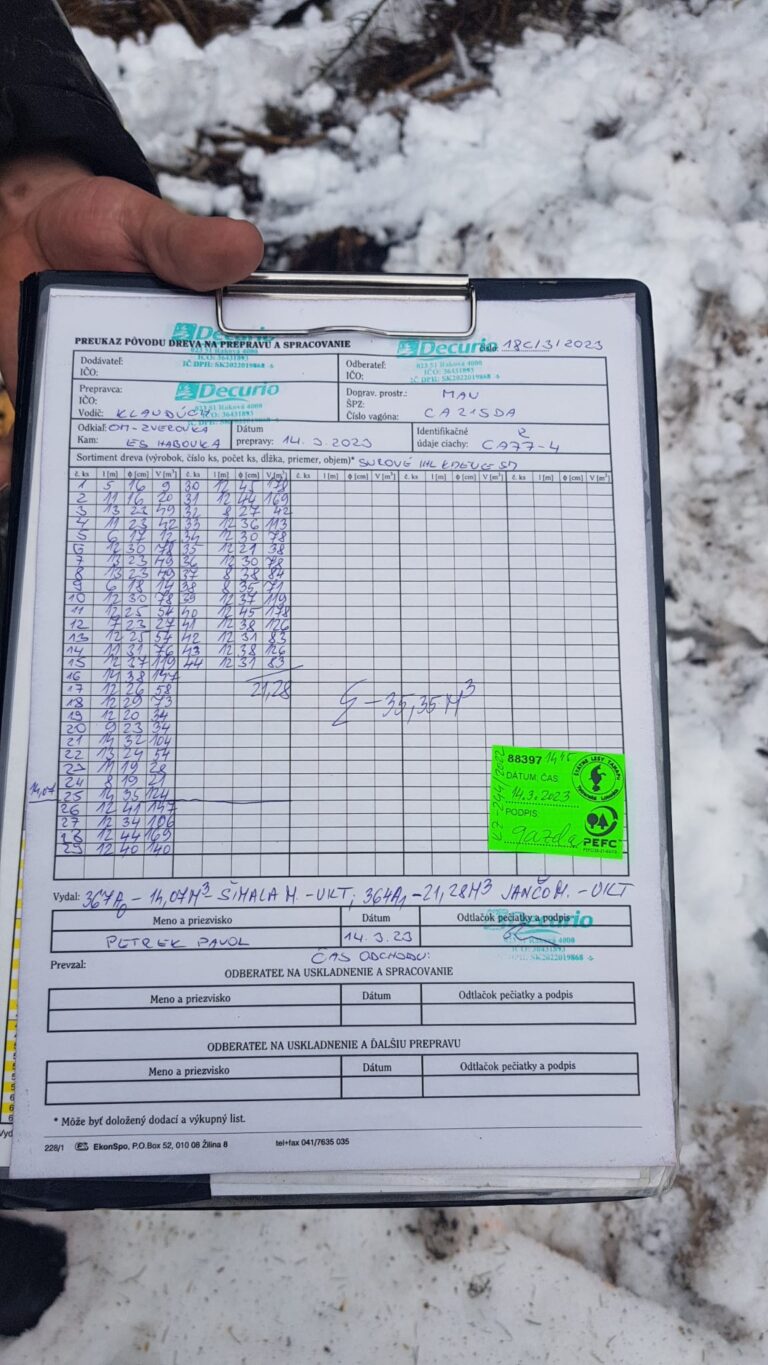 Decurio
PREUKAZ PÔVODU DREVA NA PREPRAVU A SPRACOVANIE
023 51 Raková 4000
IČO: 36431893
IČ DPH: SK2022019868
Decurio
18C/3/2023
023 51 Raková 4000
IČO: 36431893
IČ DPH: SK2022019868
Dodávateľ:
IČO:
Odberateľ:
IČO:
Prepravca:
IČO:
Vodič:
Decurio
023 51 Raková 4000
IČO: 36431893
IČ DPH: SK2022019868
Doprav. prostr.: MAN
ŠPZ:
Číslo vagóna: CA215DA
Odkiaľ: OM-ZVEROVKA
Kam: ES HABOVKA
Dátum
prepravy: 14.3.2023
Identifikačné
údaje ciachy: CA77-4
Sortiment dreva (výrobok, číslo ks, počet ks, dĺžka, priemer, objem)* SUROVÉ IHL
č. ks l [m] ϕ [cm] V [m³] č. ks l [m] ϕ [cm] V [m³] č. ks l [m] ϕ [cm] V [m³] č. ks l [m] ϕ [cm] V [m³] č. ks l [m] ϕ [cm] V [m³]
1 5 16 9 30 12 45 178
2 11 16 20 31 12 44 169
3 13 23 49 32 8 27 42
4 11 23 42 33 12 36 113
5 6 17 12 34 12 30 78
6 12 30 78 35 12 21 38
7 13 23 49 36 12 30 78
8 13 23 49 37 8 38 84
9 6 18 14 38 8 35 71
10 12 30 78 39 11 37 119
11 12 25 54 40 12 45 178
12 7 23 27 41 12 38 126
13 12 25 54 42 12 31 83
14 11 31 76 43 12 38 126
15 12 37 119 44 12 31 83
16 14 38 147
17 12 26 58 21,28
18 12 29 73 Σ - 35,35 M³
19 12 20 34
20 9 23 34
21 14 32 104
22 13 24 54
23 11 19 28
24 8 19 21
14,07 25 14 35 124
26 12 41 147
27 12 34 106
28 12 44 169
29 12 40 140
88397 1445
DÁTUM: ČAS:
14.3.2023
PODPIS:
gazda
ŠTÁTNE LESY TANAPU
PEFC
Vydal: 367A0 - 14,07M³ - ŠIMALA M. - UKT; 364A1 - 21,28M³ JANČO M. - UKT
Meno a priezvisko Dátum Odtlačok pečiatky a podpis
PETREK PAVOL 14.3.23
Decurio
023 51 Raková 4000
IČ DPH: SK2022019868
Prevzal: ČAS ODCHODU:
ODBERATEĽ NA USKLADNENIE A SPRACOVANIE
Meno a priezvisko Dátum Odtlačok pečiatky a podpis
ODBERATEĽ NA USKLADNENIE A ĎALŠIU PREPRAVU
Meno a priezvisko Dátum Odtlačok pečiatky a podpis
* Môže byť doložený dodací a výkupný list.
228/1 EkonSpo, P.O.Box 52, 010 08 Žilina 8 tel+fax 041/7635 035